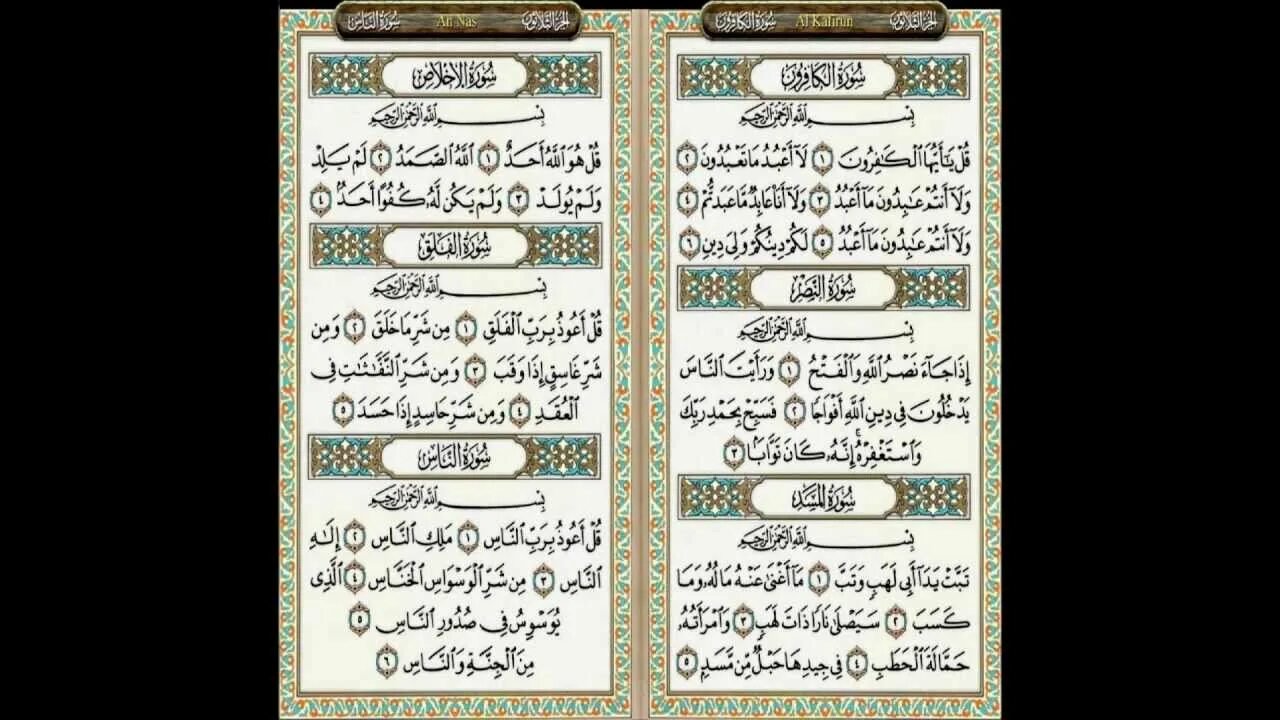 سورة الكافرون Al Kafirun الجزء الثلاثون
سُورَةُ الكَافِرُون
بِسْمِ اللَّهِ الرَّحْمَٰنِ الرَّحِيمِ
قُلْ يَٰٓأَيُّهَا ٱلْكَٰفِرُونَ ١ لَآ أَعْبُدُ مَا تَعْبُدُونَ ٢
وَلَآ أَنتُمْ عَٰبِدُونَ مَآ أَعْبُدُ ٣ وَلَآ أَنَا۠ عَابِدٌ مَّا عَبَدتُّمْ ٤
وَلَآ أَنتُمْ عَٰبِدُونَ مَآ أَعْبُدُ ٥ لَكُمْ دِينُكُمْ وَلِىَ دِينِ ٦
سُورَةُ النَّصْر
بِسْمِ اللَّهِ الرَّحْمَٰنِ الرَّحِيمِ
إِذَا جَآءَ نَصْرُ ٱللَّهِ وَٱلْفَتْحُ ١ وَرَأَيْتَ ٱلنَّاسَ
يَدْخُلُونَ فِى دِينِ ٱللَّهِ أَفْوَاجًا ٢ فَسَبِّحْ بِحَمْدِ رَبِّكَ
وَٱسْتَغْفِرْهُ ۚ إِنَّهُۥ كَانَ تَوَّابًۢا ٣
سُورَةُ المَسَد
بِسْمِ اللَّهِ الرَّحْمَٰنِ الرَّحِيمِ
تَبَّتْ يَدَآ أَبِى لَهَبٍ وَتَبَّ ١ مَآ أَغْنَىٰ عَنْهُ مَالُهُۥ وَمَا
كَسَبَ ٢ سَيَصْلَىٰ نَارًا ذَاتَ لَهَبٍ ٣ وَٱمْرَأَتُهُۥ
حَمَّالَةَ ٱلْحَطَبِ ٤ فِى جِيدِهَا حَبْلٌ مِّن مَّسَدٍۭ ٥
سورة الناس An Nas الجزء الثلاثون
سُورَةُ الإِخْلَاص
بِسْمِ اللَّهِ الرَّحْمَٰنِ الرَّحِيمِ
قُلْ هُوَ ٱللَّهُ أَحَدٌ ١ ٱللَّهُ ٱلصَّمَدُ ٢ لَمْ يَلِدْ
وَلَمْ يُولَدْ ٣ وَلَمْ يَكُن لَّهُۥ كُفُوًا أَحَدٌۢ ٤
سُورَةُ الفَلَق
بِسْمِ اللَّهِ الرَّحْمَٰنِ الرَّحِيمِ
قُلْ أَعُوذُ بِرَبِّ ٱلْفَلَقِ ١ مِن شَرِّ مَا خَلَقَ ٢ وَمِن
شَرِّ غَاسِقٍ إِذَا وَقَبَ ٣ وَمِن شَرِّ ٱلنَّفَّٰثَٰتِ فِى
ٱلْعُقَدِ ٤ وَمِن شَرِّ حَاسِدٍ إِذَا حَسَدَ ٥
سُورَةُ النَّاس
بِسْمِ اللَّهِ الرَّحْمَٰنِ الرَّحِيمِ
قُلْ أَعُوذُ بِرَبِّ ٱلنَّاسِ ١ مَلِكِ ٱلنَّاسِ ٢ إِلَٰهِ
ٱلنَّاسِ ٣ مِن شَرِّ ٱلْوَسْوَاسِ ٱلْخَنَّاسِ ٤ ٱلَّذِى
يُوَسْوِسُ فِى صُدُورِ ٱلنَّاسِ ٥
مِنَ ٱلْجِنَّةِ وَٱلنَّاسِ ٦